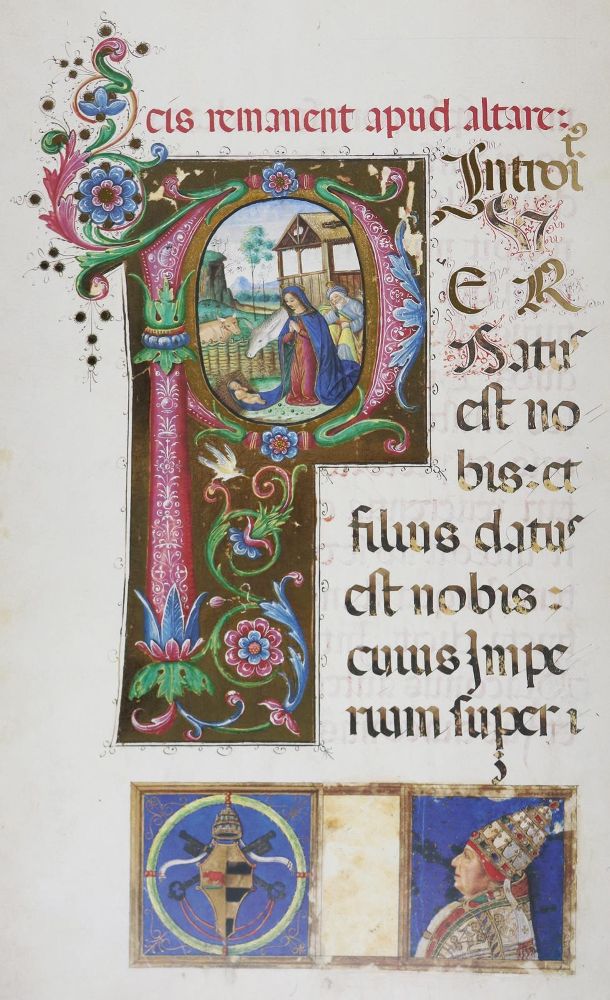 cis remanent apud altare:
Introit
PV
E R
Natus
est no
bis: et
filius datus
est nobis:
cuius Impe
rium super